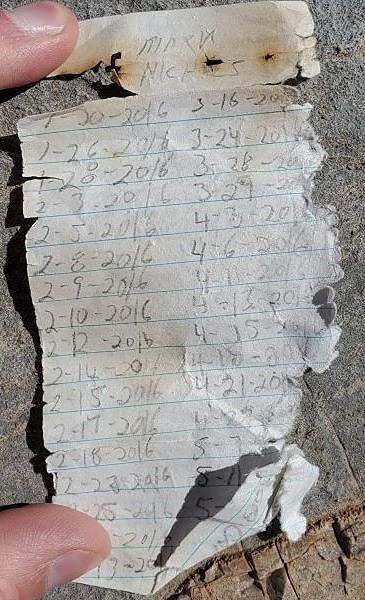 MARK
1-20-2016 3-16-20
1-26-2016 3-24-2016
1-28-2016 3-28-20
2-3-2016 3-29-20
2-5-2016 4-3-2016
2-8-2016 4-6-2016
2-9-2016 2016
2-10-2016 4-13-2016
2-12-2016 4-15-2016
2-14-2016 4-18-20
2-15-2016 4-21-20
2-17-2016
2-18-2016 5-7
2-23-2016 5-11
25-2016 5-
2016
13-20